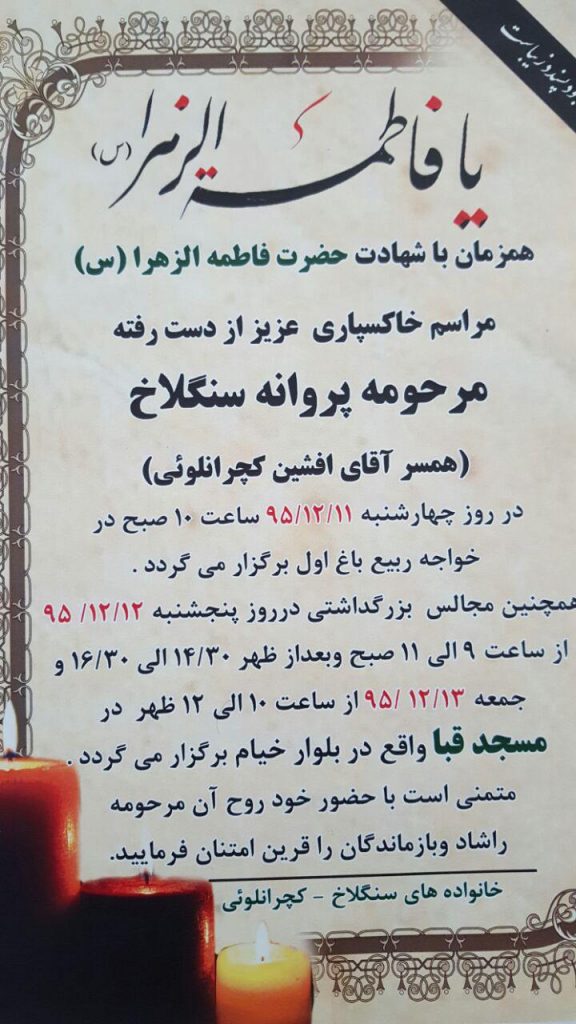 یا فاطمة الزهرا (س)
همزمان با شهادت حضرت فاطمه الزهرا (س)
مراسم خاکسپاری عزیز از دست رفته
مرحومه پروانه سنگلاخ
(همسر آقای افشین کچرانلوئی)
در روز چهارشنبه ۹۵/۱۲/۱۱ ساعت ۱۰ صبح در
خواجه ربیع باغ اول برگزار می گردد .
همچنین مجالس بزرگداشتی درروز پنجشنبه ۱۲/۱۲/ ۹۵
از ساعت ۹ الی ۱۱ صبح وبعداز ظهر ۱۴/۳۰ الی ۱۶/۳۰ و
جمعه ۱۲/۱۳/ ۹۵ از ساعت ۱۰ الی ۱۲ ظهر در
مسجد قبا واقع در بلوار خیام برگزار می گردد .
متمنی است با حضور خود روح آن مرحومه
راشاد وبازماندگان را قرین امتنان فرمایید.
خانواده های سنگلاخ - کچرانلوئی